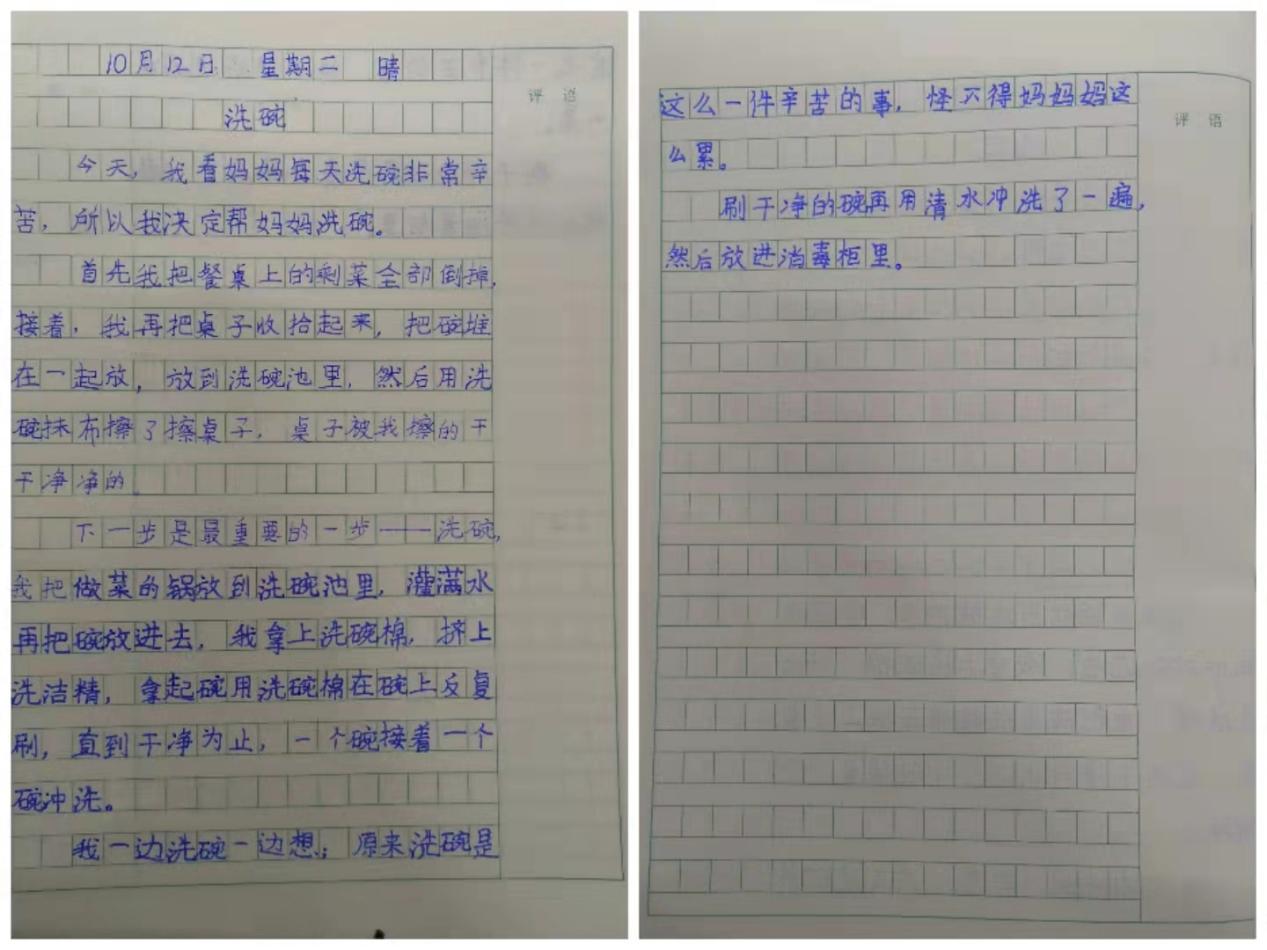 10月12日 星期二 晴
评 语
洗碗
今天，我看妈妈每天洗碗非常辛
苦，所以我决定帮妈妈洗碗。
首先我把餐桌上的剩菜全部倒掉，
接着，我再把桌子收拾起来，把碗堆
在一起放，放到洗碗池里，然后用洗
碗抹布擦了擦桌子，桌子被我擦的干
干净净的。
下一步是最重要的一步——洗碗，
我把做菜的锅放到洗碗池里，灌满水
再把碗放进去，我拿上洗碗棉，挤上
洗洁精，拿起碗用洗碗棉在碗上反复
刷，直到干净为止，一个碗接着一个
碗冲洗。
我一边洗碗一边想：原来洗碗是
这么一件辛苦的事，怪不得妈妈妈这
评 语
么累。
刷干净的碗再用清水冲洗了一遍，
然后放进消毒柜里。